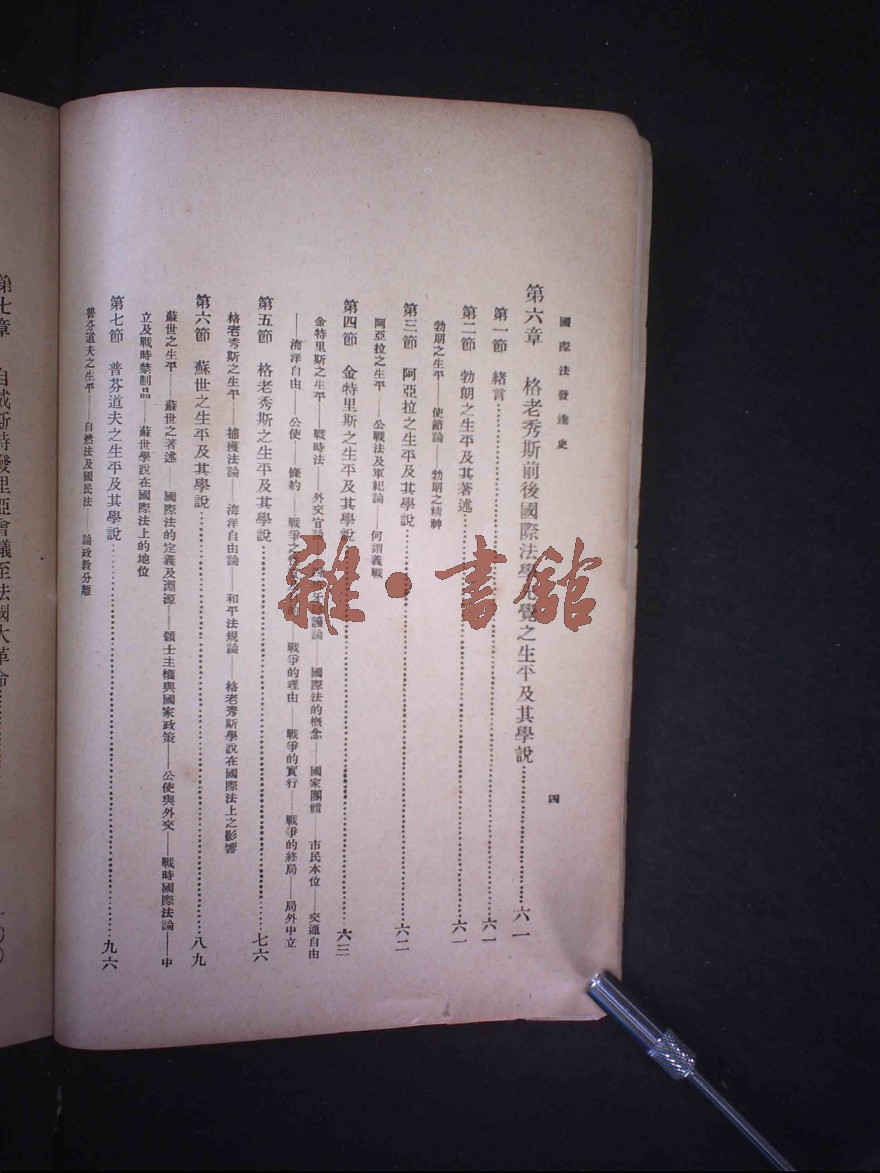 國際法發達史
四
第六章 格老秀斯前後國際法學先覺之生平及其學說……六一
第一節 緒言……六一
第二節 勃朗之生平及其著述……六一
勃朗之生平——使節論——勃朗之精神
第三節 阿亞拉之生平及其學說……六二
阿亞拉之生平——公戰法及軍紀論——何謂義戰
第四節 金特里斯之生平及其學說……六三
金特里斯之生平——戰時法——外交官論——牙 護論——國際法的概念——國家團體——市民本位——交通自由
——海洋自由——公使——條約——戰爭之 的——戰爭的理由——戰爭的實行——戰爭的終局——局外中立
第五節 格老秀斯之生平及其學說……七六
格老秀斯之生平——捕獲法論——海洋自由論——和平法規論——格老秀斯學說在國際法上之影響
第六節 蘇世之生平及其學說……八九
蘇世之生平——蘇世之著述——國際法的定義及淵源——領土主權與國家政策——公使與外交——戰時國際法論——中
立及戰時禁制品——蘇世學說在國際法上的地位
第七節 普芬道夫之生平及其學說……九六
普芬道夫之生平——自然法及國民法——論政教分離
第七章 自威斯特發里亞會議至法國大革命……
雜·書館